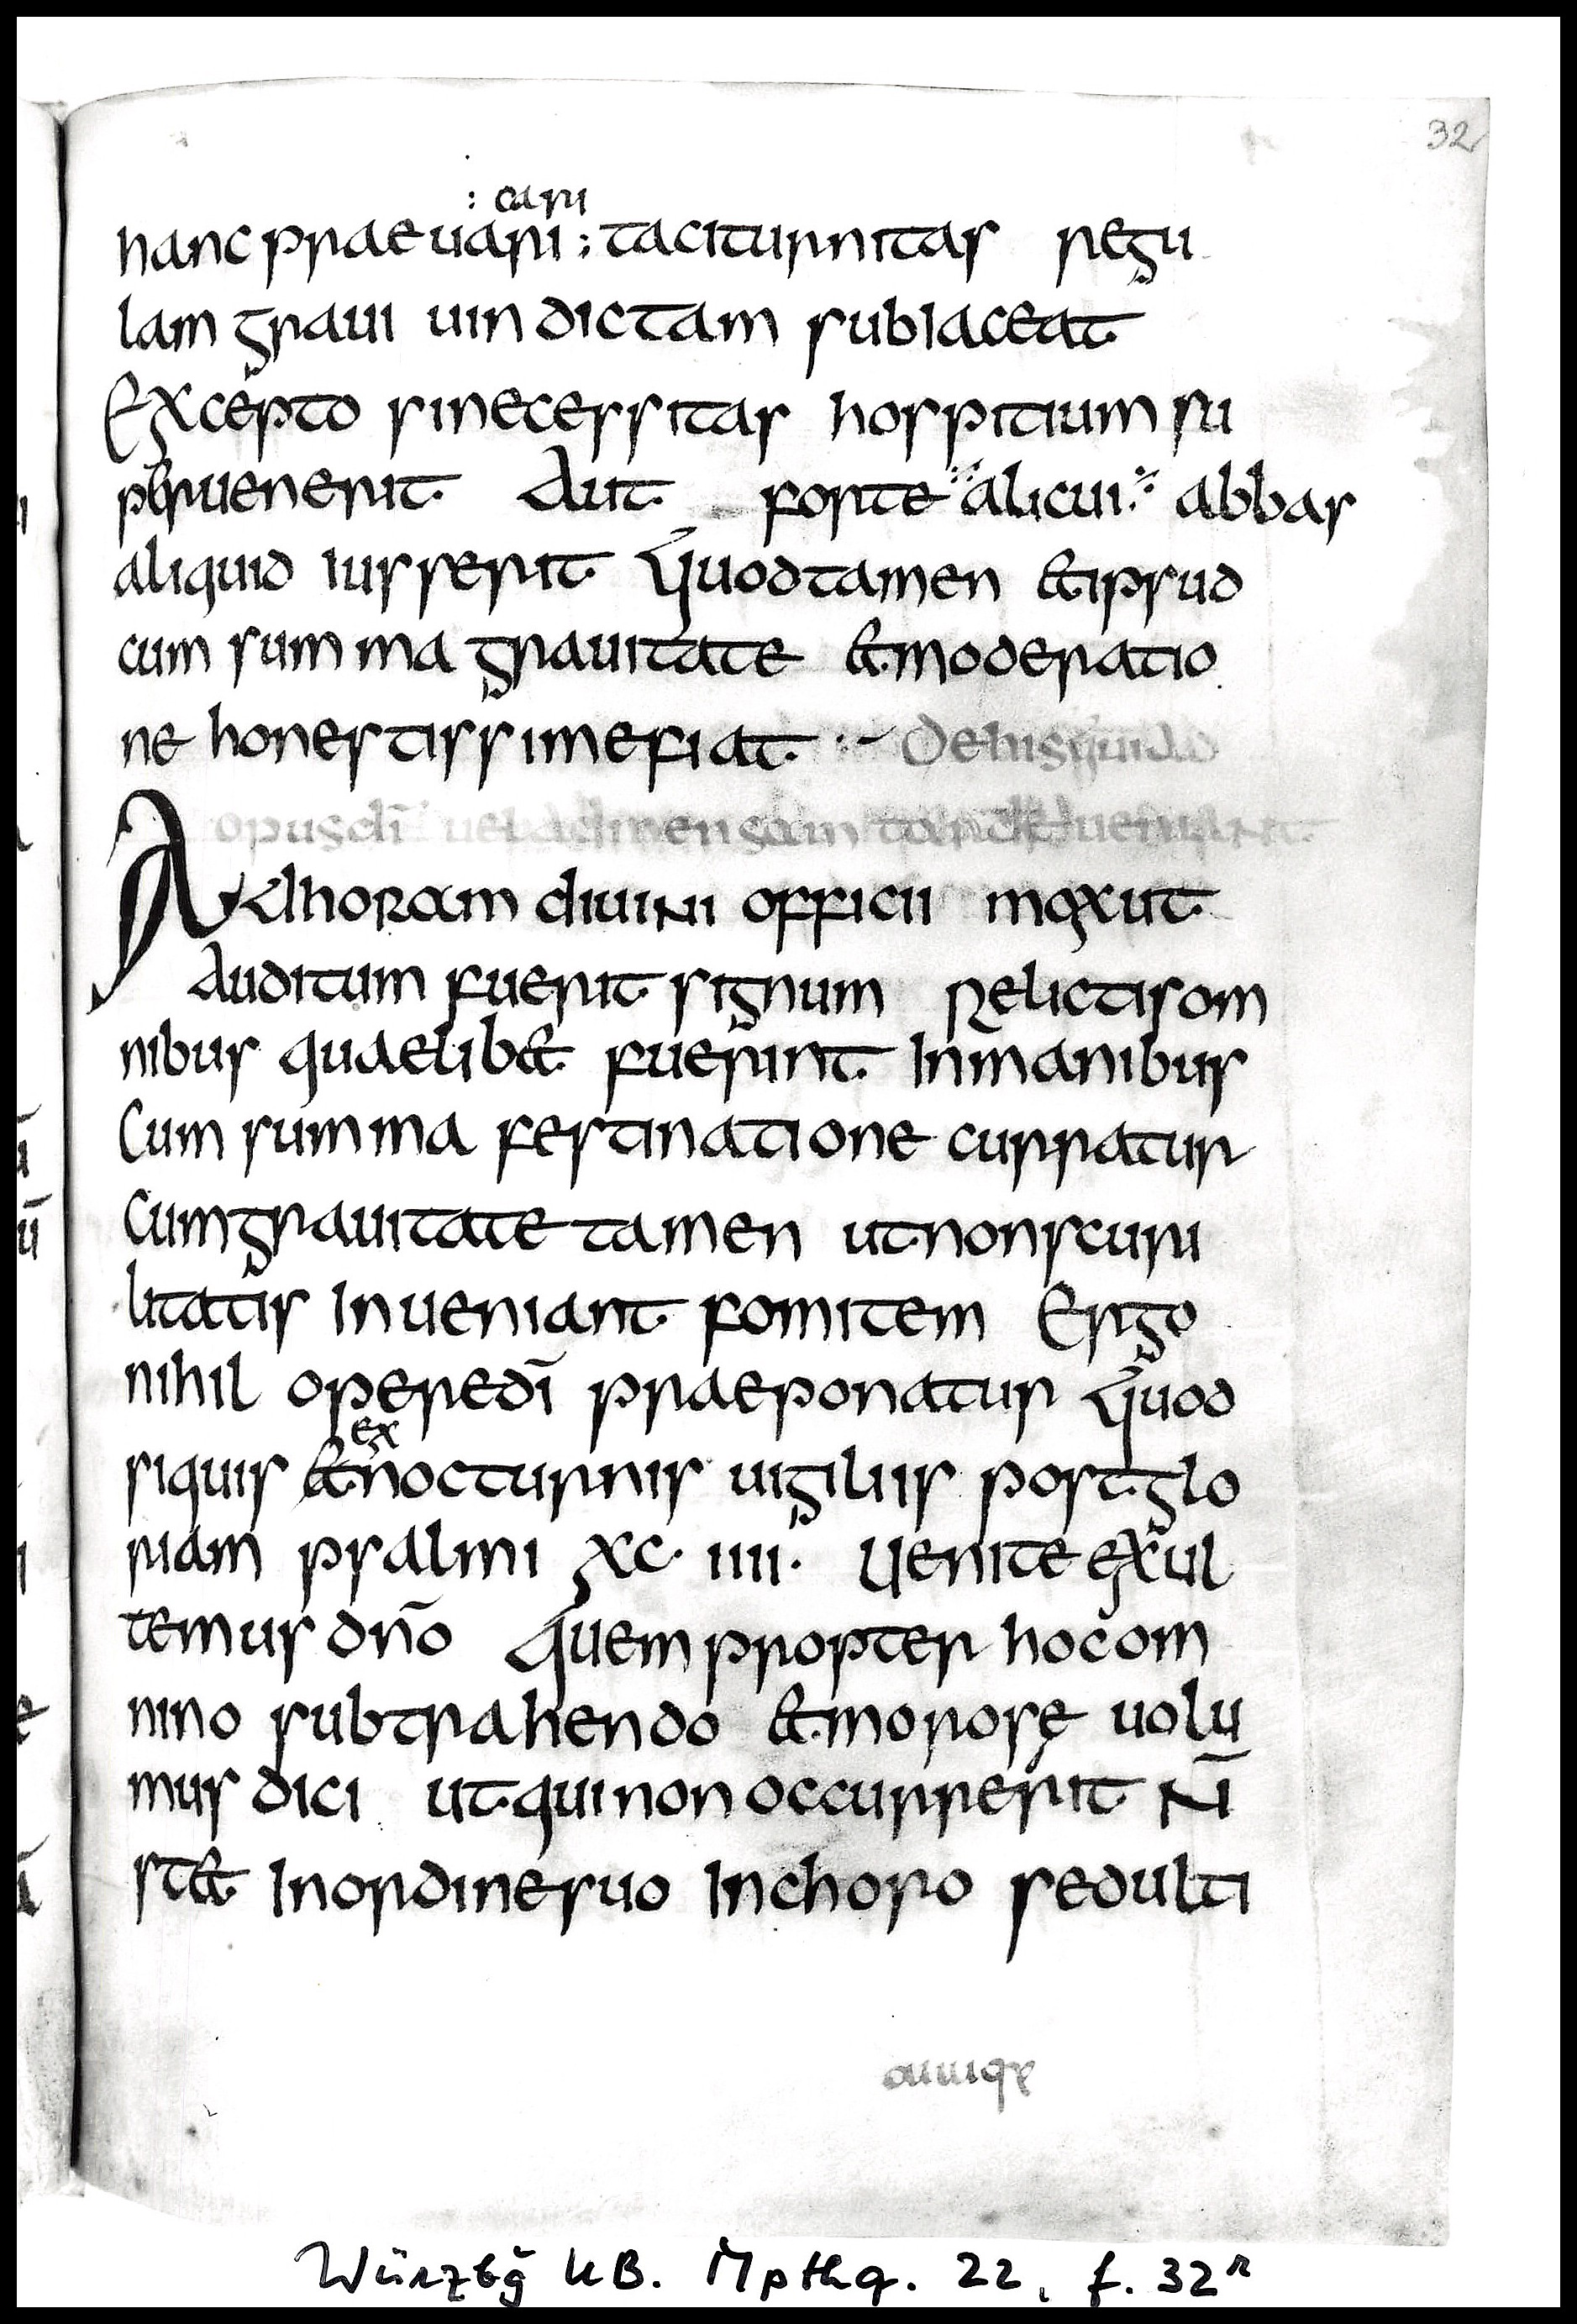 32
: cari
hanc praeuari ; taciturnitas regu
lam graui uindictam subiaceat
Excepto sinecessitas hospitium su
peruenerit Aut forte alicui abbas
aliquid iusserit Quodtamen &ipsud
cum summa grauitate &moderatio
ne honestissimefiat :~ Dehisquiad
opusdī ueladmensam tarde ueniant
Adhoram diuini officii moxut
Auditum fuerit signum Relictisom
nibus quaelib& fuerint Inmanibus
Cum summa festinatione curratur
Cumgrauitate tamen utnonscuri
litatis Inueniant fomitem Ergo
nihil operedī praeponatur Quod
ex
siquis &nocturnis uigiliis postglo
riam psalmi xc. iiii. Uenite exul
temus dño Quem propter hocom
nino subtrahendo &morosę uolu
mus dici utquinonoccurrerit Nī
st& Inordinesuo Inchoro sedulti
Würzbg UB. Mpthq. 22, f. 32r